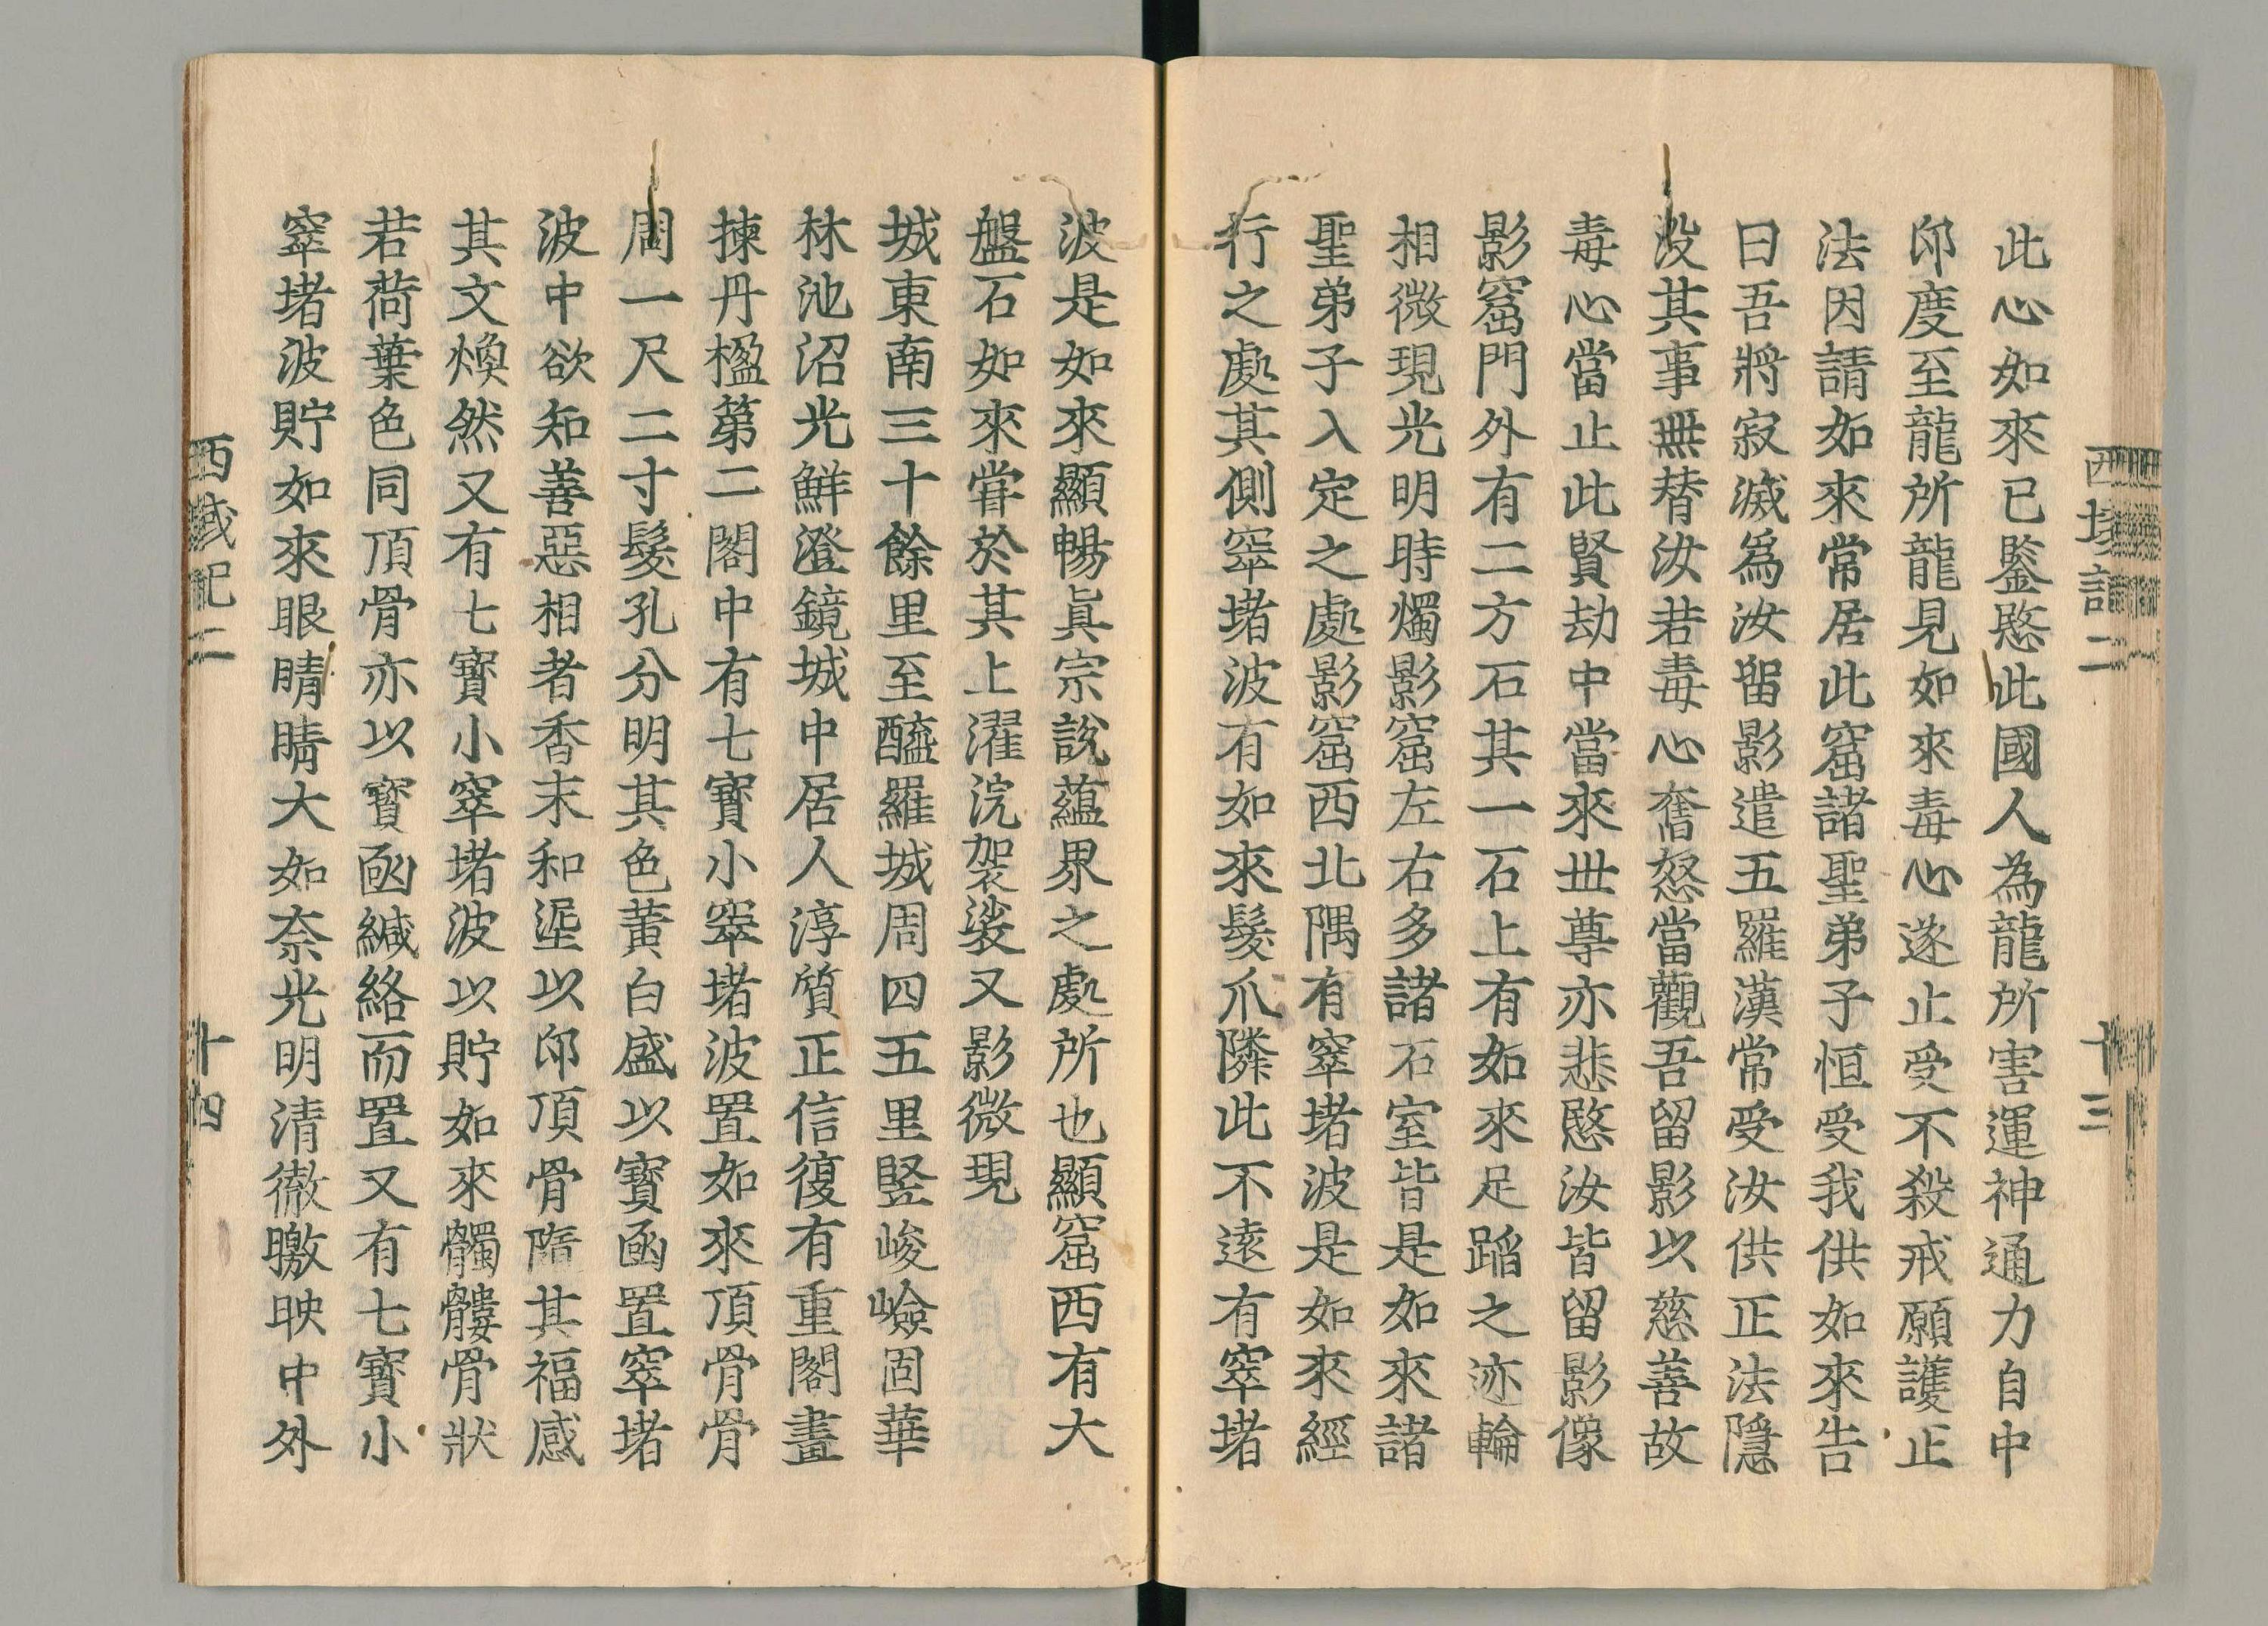 西域記二 十三
此心如來已鑒愍此國人為龍所害運神通力自中
印度至龍所龍見如來毒心遂止受不殺戒願護正
法因請如來常居此窟諸聖弟子恒受我供如來告
曰吾將寂滅爲汝留影遣五羅漢常受汝供正法隱
没其事無替汝若毒心奮怒當觀吾留影以慈善故
毒心當止此賢劫中當來世尊亦悲愍汝皆留影像
影窟門外有二方石其一石上有如來足蹈之迹輪
相微現光明時燭影窟左右多諸石室皆是如來諸
聖弟子入定之處影窟西北隅有窣堵波是如來經
行之處其側窣堵波有如來髮爪隣此不遠有窣堵
波是如來顯暢眞宗說蘊界之處所也顯窟西有大
盤石如來甞於其上濯浣袈裟又影微現
城東南三十餘里至醯羅城周四五里竪峻嶮固華
林池沼光鮮澄鏡城中居人淳質正信復有重閣畫
揀丹楹第二閣中有七寶小窣堵波置如來頂骨骨
周一尺二寸髮孔分明其色黃白盛以寶函置窣堵
波中欲知善惡相者香末和埿以印頂骨隋其福感
其文煥然又有七寶小窣堵波以貯如來髑髏骨狀
若荷葉色同頂骨亦以寶函緘絡而置又有七寶小
窣堵波貯如來眼睛睛大如奈光明清徹曒映中外
西域記二 十四